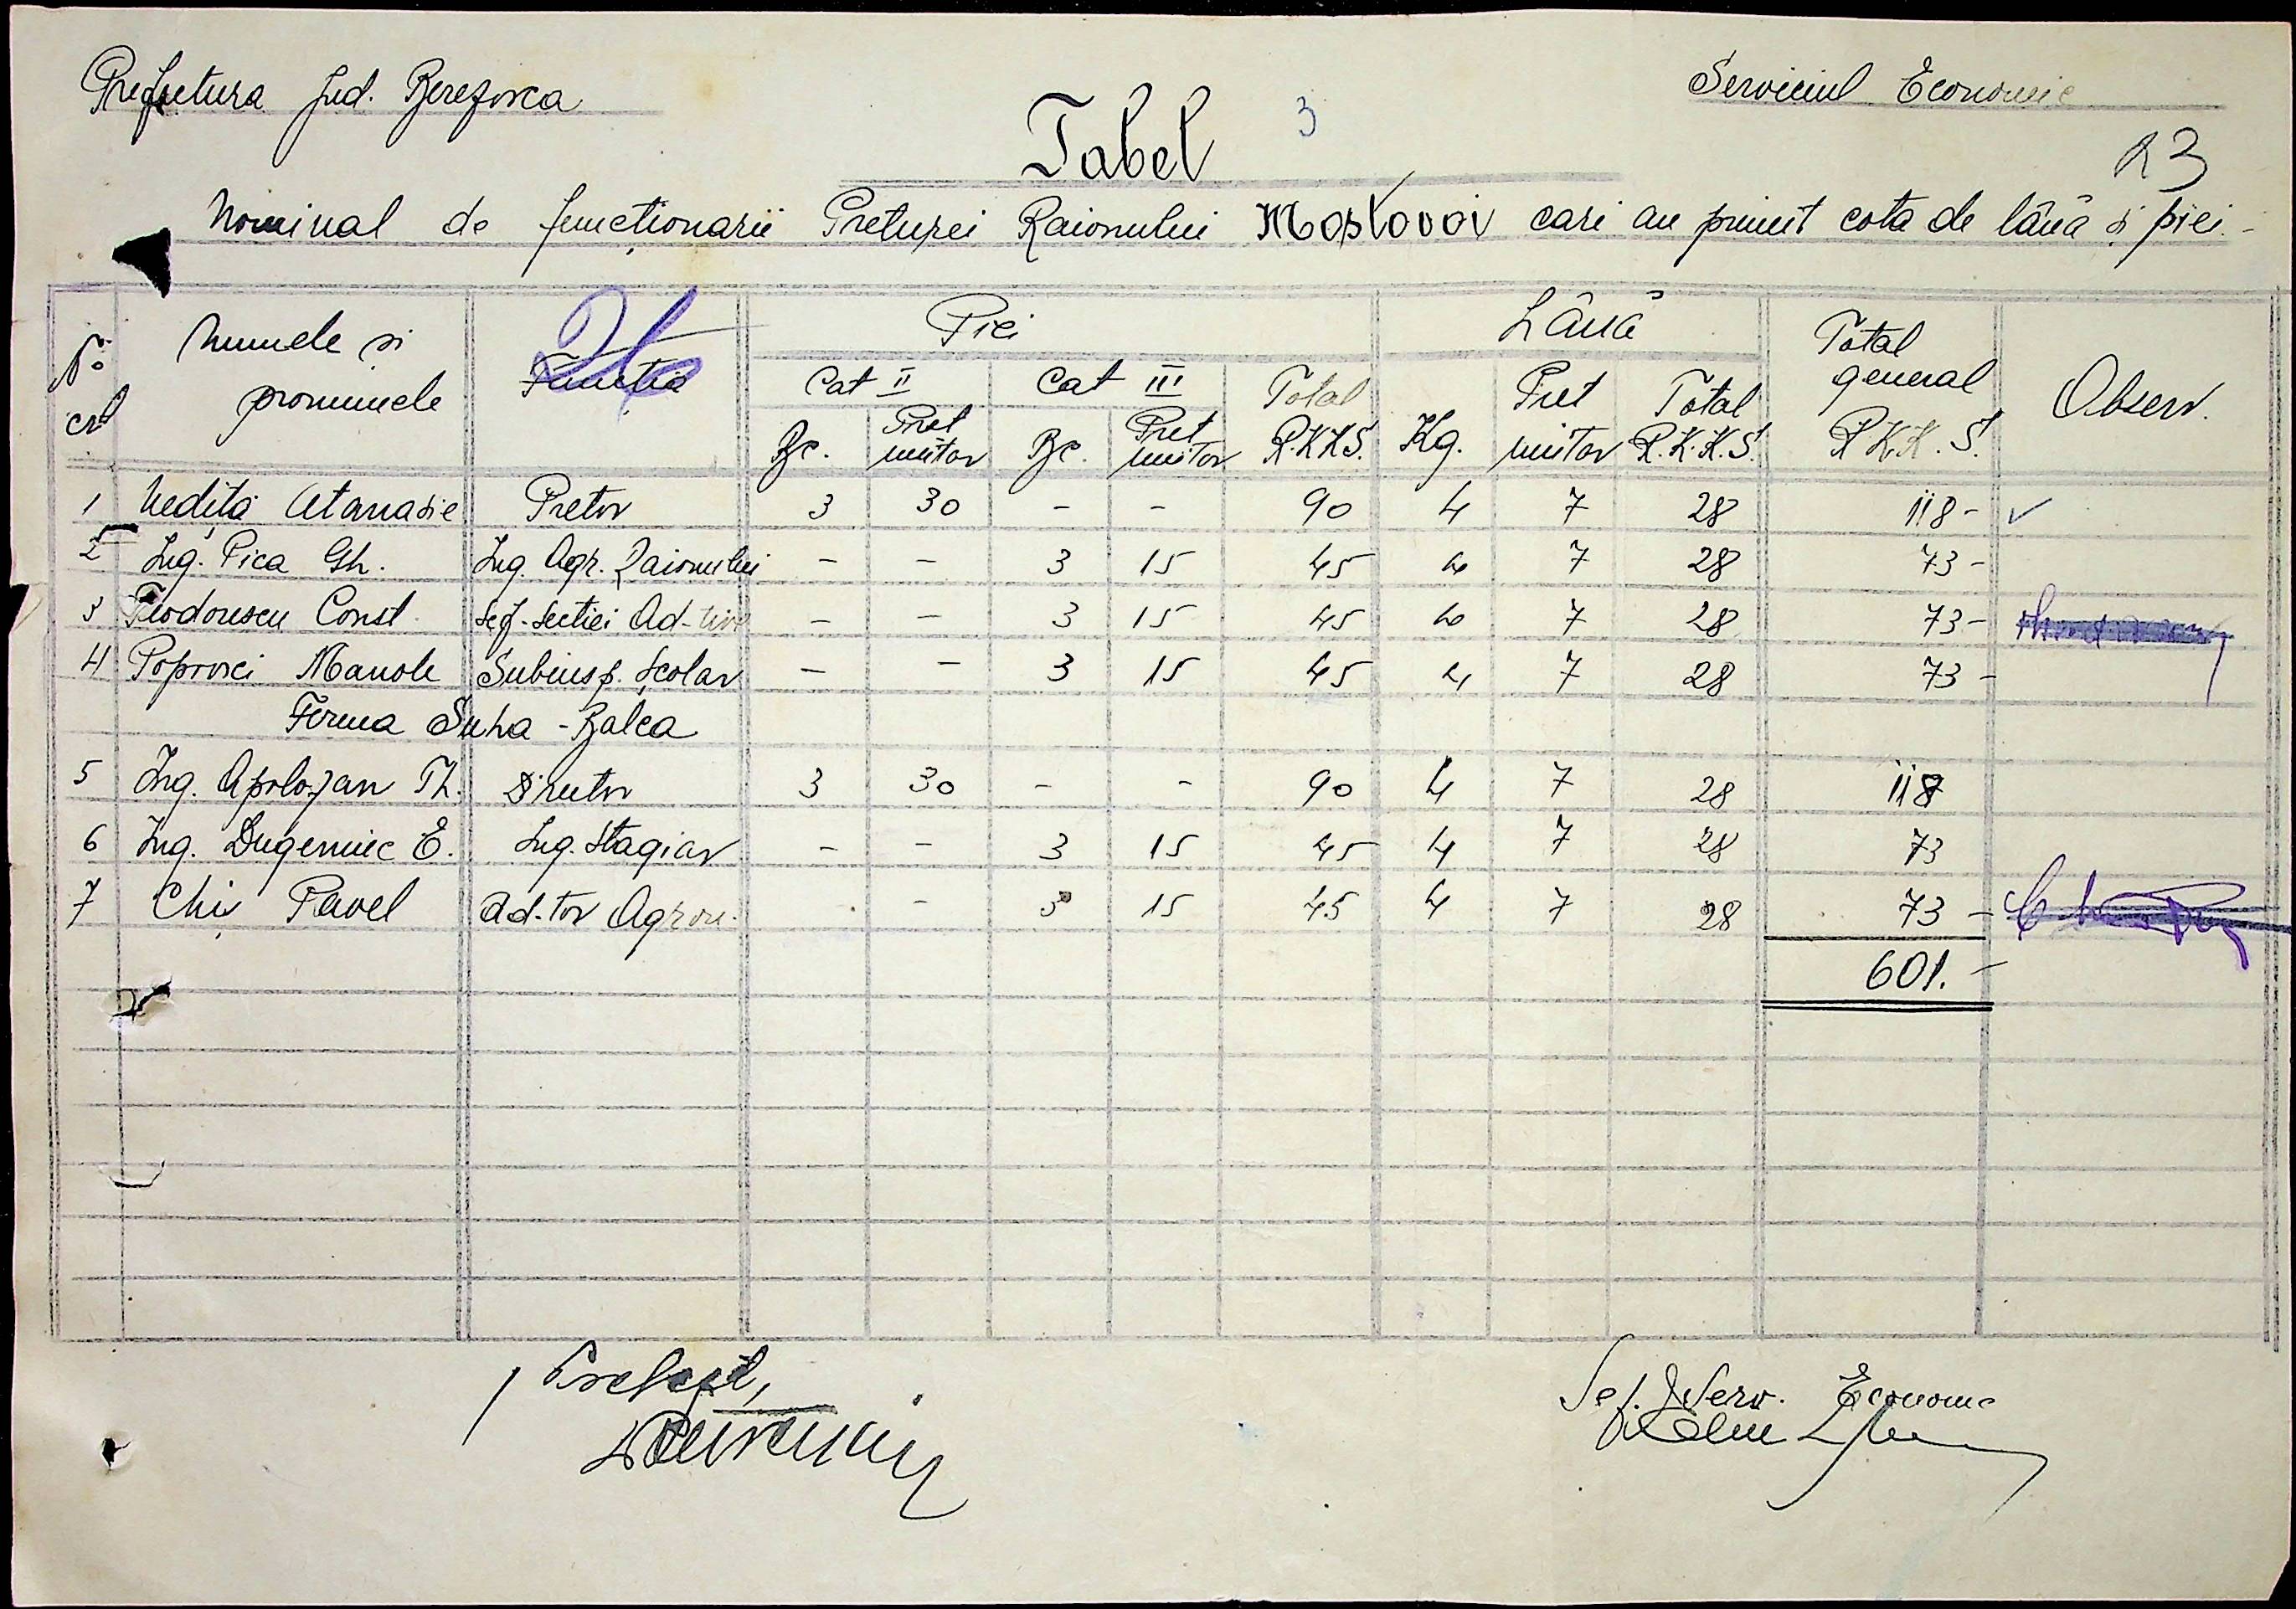 Prefectura Jud. Berezovca
Serviciul Economic
Tabel 3
23
Nominal de funcționarii Preturei Raionului Mostovoi cari au primit cota de lână și piei.-
No crt | Numele si pronumele | Funcția | Piei | Lână | Total general R.K.K.S. | Observ.
Cat II | Cat III | Total R.K.K.S. | Kg. | Pret unitar | Total R.K.K.S.
Bc. | Pret unitar | Bc. | Pret unitar
1 Nediță Atanasie Pretor 3 30 - - 90 4 7 28 118-
2 Ing. Pica Gh. Ing. Agr. Raionului - - 3 15 45 4 7 28 73-
3 Teodorescu Const. Șef. Secției Ad-tive - - 3 15 45 4 7 28 73-
4 Popovici Manole Subinsp. Școlar - - 3 15 45 4 7 28 73-
Ferma Suha-Balca
5 Ing. Apolozan Th. Director 3 30 - - 90 4 7 28 118
6 Ing. E. Ing. Stagiar - - 3 15 45 4 7 28 73
7 Chiș Pavel Ad-tor Agron. - - 3 15 45 4 7 28 73-
601.-
/ Prefect,
Șef. Serv. Economic